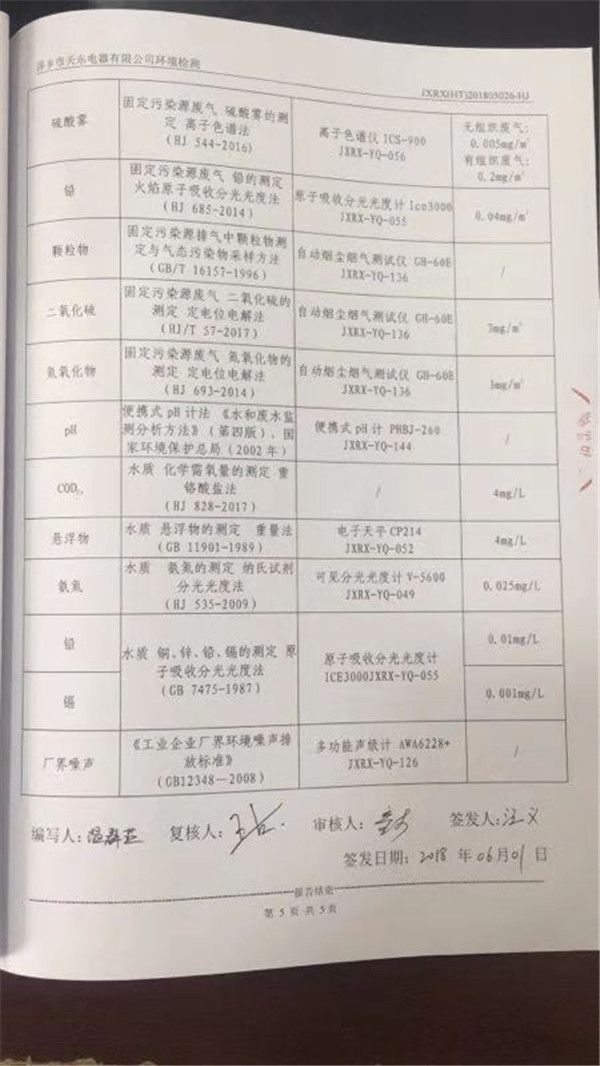 萍乡市天东电器有限公司环境检测
JXRX(HT)201805026-HJ
硫酸雾
固定污染源废气 硫酸雾的测
定 离子色谱法
(HJ 544-2016)
离子色谱仪 ICS-900
JXRX-YQ-056
无组织废气:
0.005mg/m³
有组织废气:
0.2mg/m³
铅
固定污染源废气 铅的测定
火焰原子吸收分光光度法
(HJ 685-2014)
原子吸收分光光度计 Ice3000
JXRX-YQ-055
0.04mg/m³
颗粒物
固定污染源排气中颗粒物测
定与气态污染物采样方法
(GB/T 16157-1996)
自动烟尘烟气测试仪 GH-60E
JXRX-YQ-136
/
二氧化硫
固定污染源废气 二氧化硫的
测定 定电位电解法
(HJ/T 57-2017)
自动烟尘烟气测试仪 GH-60E
JXRX-YQ-136
3mg/m³
氮氧化物
固定污染源废气 氮氧化物的
测定 定电位电解法
(HJ 693-2014)
自动烟尘烟气测试仪 GH-60E
JXRX-YQ-136
3mg/m³
pH
便携式 pH 计法 《水和废水监
测分析方法》(第四版)、国
家环境保护总局(2002 年)
便携式 pH 计 PHBJ-260
JXRX-YQ-144
/
CODcr
水质 化学需氧量的测定 重
铬酸盐法
(HJ 828-2017)
/
4mg/L
悬浮物
水质 悬浮物的测定 重量法
(GB 11901-1989)
电子天平 CP214
JXRX-YQ-052
4mg/L
氨氮
水质 氨氮的测定 纳氏试剂
分光光度法
(HJ 535-2009)
可见分光光度计 V-5600
JXRX-YQ-049
0.025mg/L
铅
水质 铜、锌、铅、镉的测定 原
子吸收分光光度法
(GB 7475-1987)
原子吸收分光光度计
ICE3000JXRX-YQ-055
0.01mg/L
镉
0.001mg/L
厂界噪声
《工业企业厂界环境噪声排
放标准》
(GB12348—2008)
多功能声级计 AWA6228+
JXRX-YQ-126
/
编写人: 复核人: 审核人: 签发人: 汪义
签发日期: 2018 年 06月 01 日
报告结束
第 5 页 共 5 页